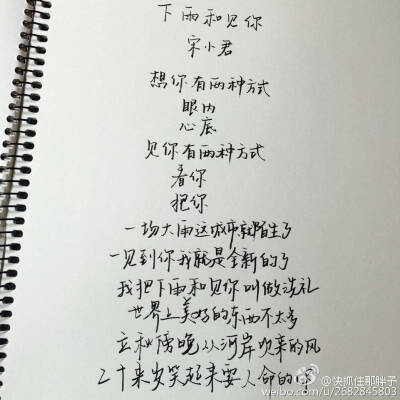 下雨和见你
宋小君
想你有两种方式
眼内
心底
见你有两种方式
看你
抱你
一场大雨这城市就陌生了
一见到你我就是全新的了
我把下雨和见你叫做洗礼
世界上美好的东西不太多
立秋傍晚从河岸吹来的风
二十来岁笑起来要人命的
@快抓住那胖子
weibo.com/u/2682845803